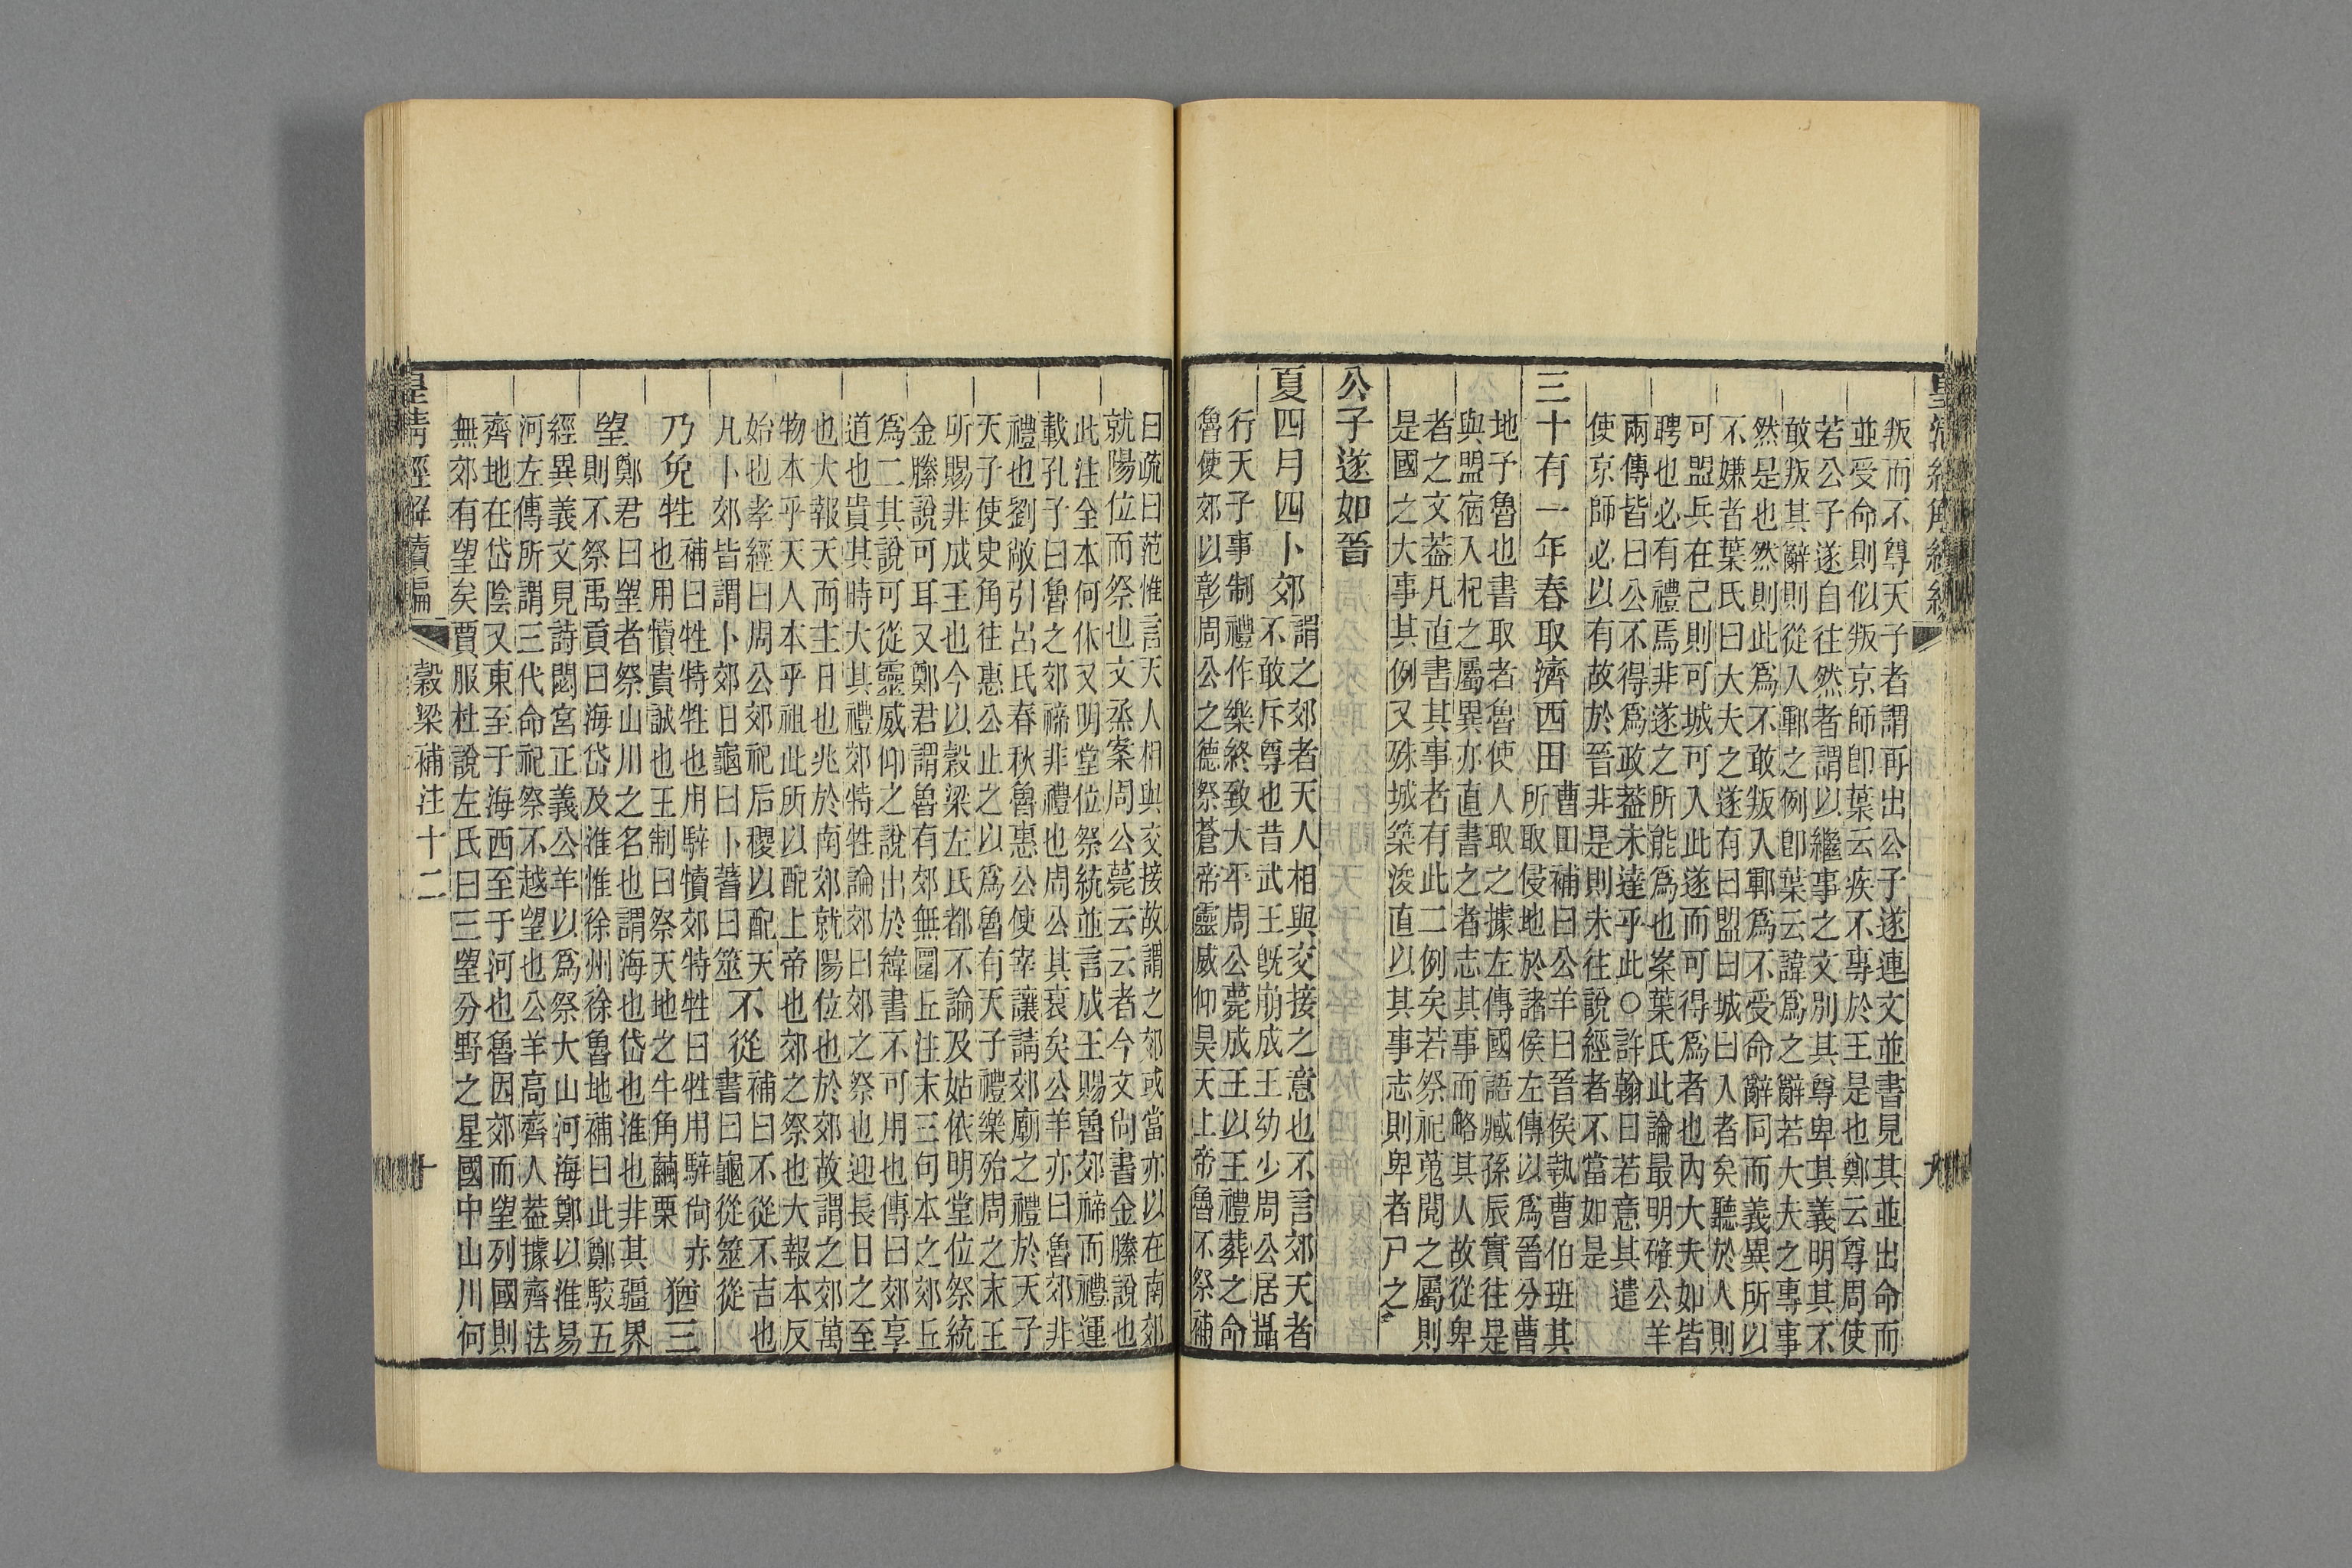 皇清經解續編
九
叛而不尊天子者謂再出公子遂連文並書見其並出命而
並受命則似叛京師卽葉云疾不專於王是也鄭云尊周使
若公子遂自往然者謂以繼事之文別其尊卑其義明其不
敢叛其辭則從人鄆之例卽葉云諱爲之辭若大夫之專事
然是也然則此爲不敢叛入鄆爲不受命辭同而義異所以
不嫌者葉氏曰大夫之遂有曰盟曰城曰入者矣聽於人則
可盟兵在己則可城可入此遂而可得爲者也內大夫如皆
聘也必有禮焉非遂之所能爲也案葉氏此論最明確公羊
兩傳皆曰公不得爲政葢未達乎此〇許翰曰若意其遣
使京師必以有故於晉非是則未往說經者不當如是
三十有一年春取濟西田
曹田補曰公羊曰晉侯執曹伯班其
所取侵地於諸侯左傳以爲晉分曹
地子魯也書取者魯使人取之據左傳國語臧孫辰實往是
與盟宿入杞之屬異亦直書之者志其事而略其人故從卑
者之文葢凡直書其事者有此二例矣若祭祀蒐閱之屬則
是國之大事其例又殊城築浚直以其事志則卑者尸之
公子遂如晉
夏四月四卜郊
謂之郊者天人相與交接之意也不言郊天者
不敢斥尊也昔武王旣崩成王幼少周公居攝
行天子事制禮作樂終致大平周公薨成王以王禮葬之命
魯使郊以彰周公之德祭蒼帝靈威仰昊天上帝魯不祭補
曰疏曰范惟言天人相與交接故謂之郊或當亦以在南郊
就陽位而祭也文烝案周公薨云云者今文尙書金縢說也
此注全本何休又明堂位祭統並言成王賜魯郊禘而禮運
載孔子曰魯之郊禘非禮也周公其衰矣公羊亦曰魯郊非
禮也劉敞引呂氏春秋魯惠公使宰讓請郊廟之禮於天子
天子使史角往惠公止之以爲魯有天子禮樂殆周之末王
所賜非成王也今以穀梁左氏都不論及姑依明堂位祭統
金縢說可耳又鄭君謂魯有郊無圜丘注末三句本之郊丘
爲二其說可從靈威仰之說出於緯書不可用也傳曰郊享
道也貴其時大其禮郊特牲論郊曰郊之祭也迎長日之至
也大報天而主日也兆於南郊就陽位也於郊故謂之郊萬
物本乎天人本乎祖此所以配上帝也郊之祭也大報本反
始也孝經曰周公郊祀后稷以配天
凡卜郊皆謂卜郊日龜曰卜蓍曰筮
不從
補曰不從不吉也
書曰龜從筮從
乃免牲
補曰牲特牲也用騂犢郊特牲曰牲用騂尙赤
也用犢貴誠也王制曰祭天地之牛角繭栗
猶三
望
鄭君曰望者祭山川之名也謂海也岱也淮也非其疆界
則不祭禹貢曰海岱及淮惟徐州徐魯地補曰此鄭駮五
經異義文見詩閟宮正義公羊以爲祭大山河海鄭以淮易
河左傳所謂三代命祀祭不越望也公羊高齊人葢據齊法
齊地在岱陰又東至于海西至于河也魯因郊而望列國則
無郊有望矣賈服杜說左氏曰三望分野之星國中山川何
皇清經解續編
穀梁補注十二
十